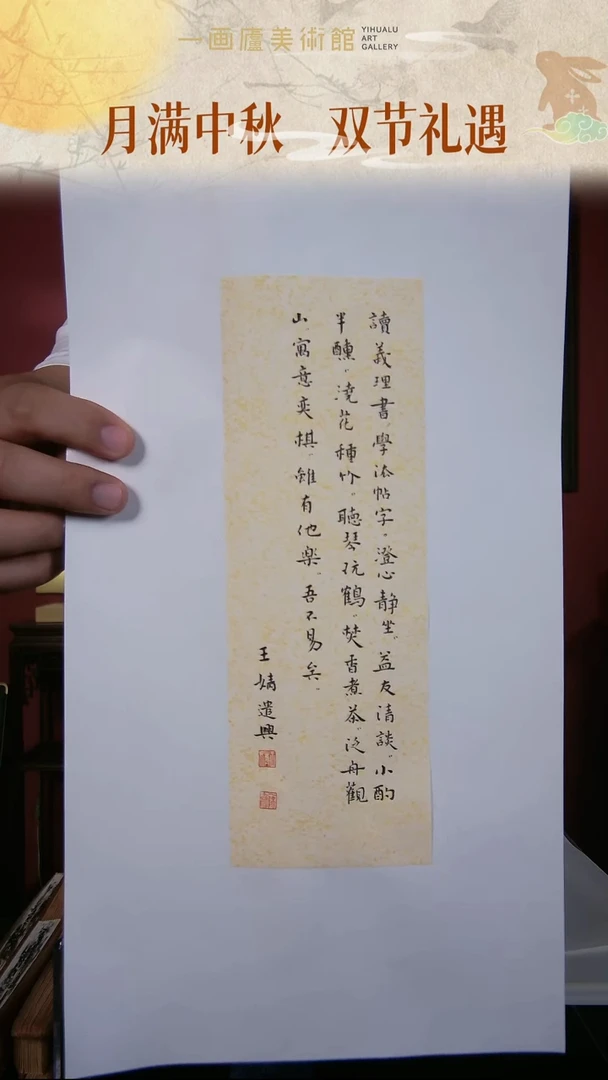 一画廬美術館
YIHUALU
ART
GALLERY
月满中秋 双节礼遇
讀義理書。學法帖字。澄心靜坐。益友清談。小酌
半醺。澆花種竹。聽琴玩鶴。焚香煮茶。泛舟觀
山。寓意奕棋。雖有他樂。吾不易矣。
王婧遣興